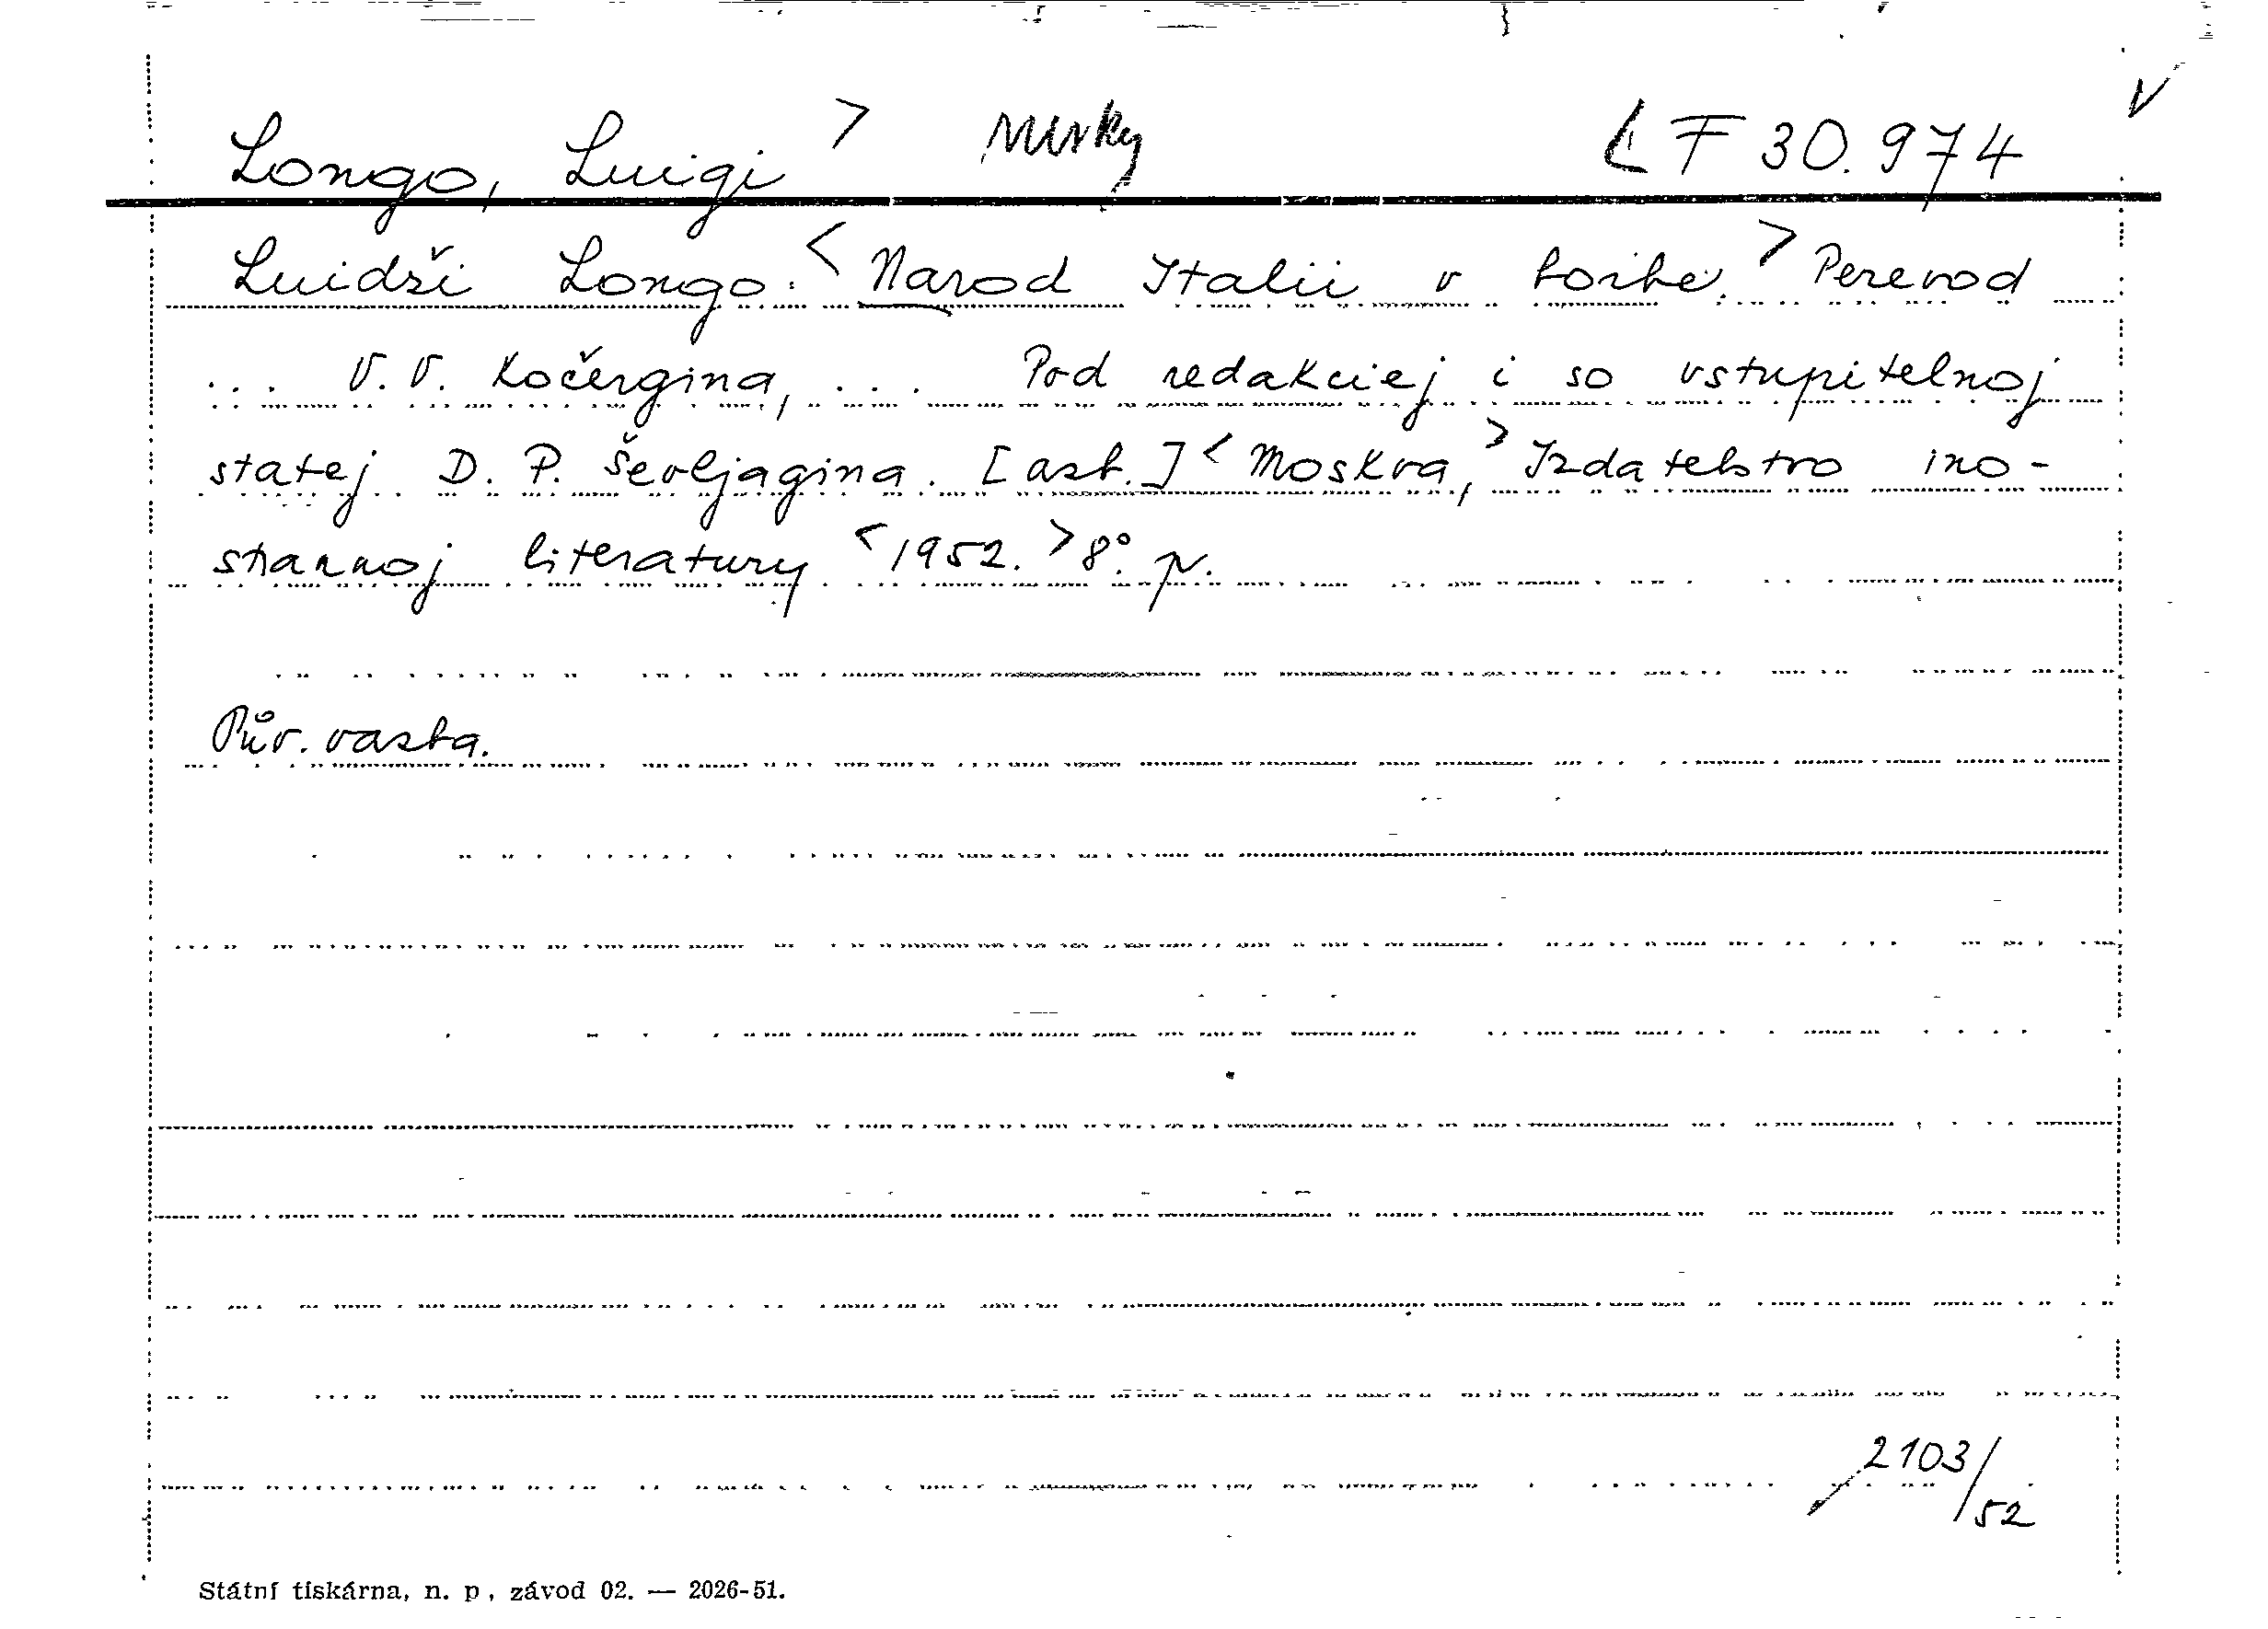 Longo, Luigi > < F 30.974 V
Luidži Longo: < Narod Italii v borbe. > Perevod
... V. V. Kočergina, ... Pod redakciej i so vstupitelnoj
statej D. P. Ševljagina. [azb.] < Moskva, > Izdatelstvo ino-
strannoj literatury < 1952. > 8° p.
Pův. vazba.
2103/52
Státní tiskárna, n. p., závod 02. — 2026-51.